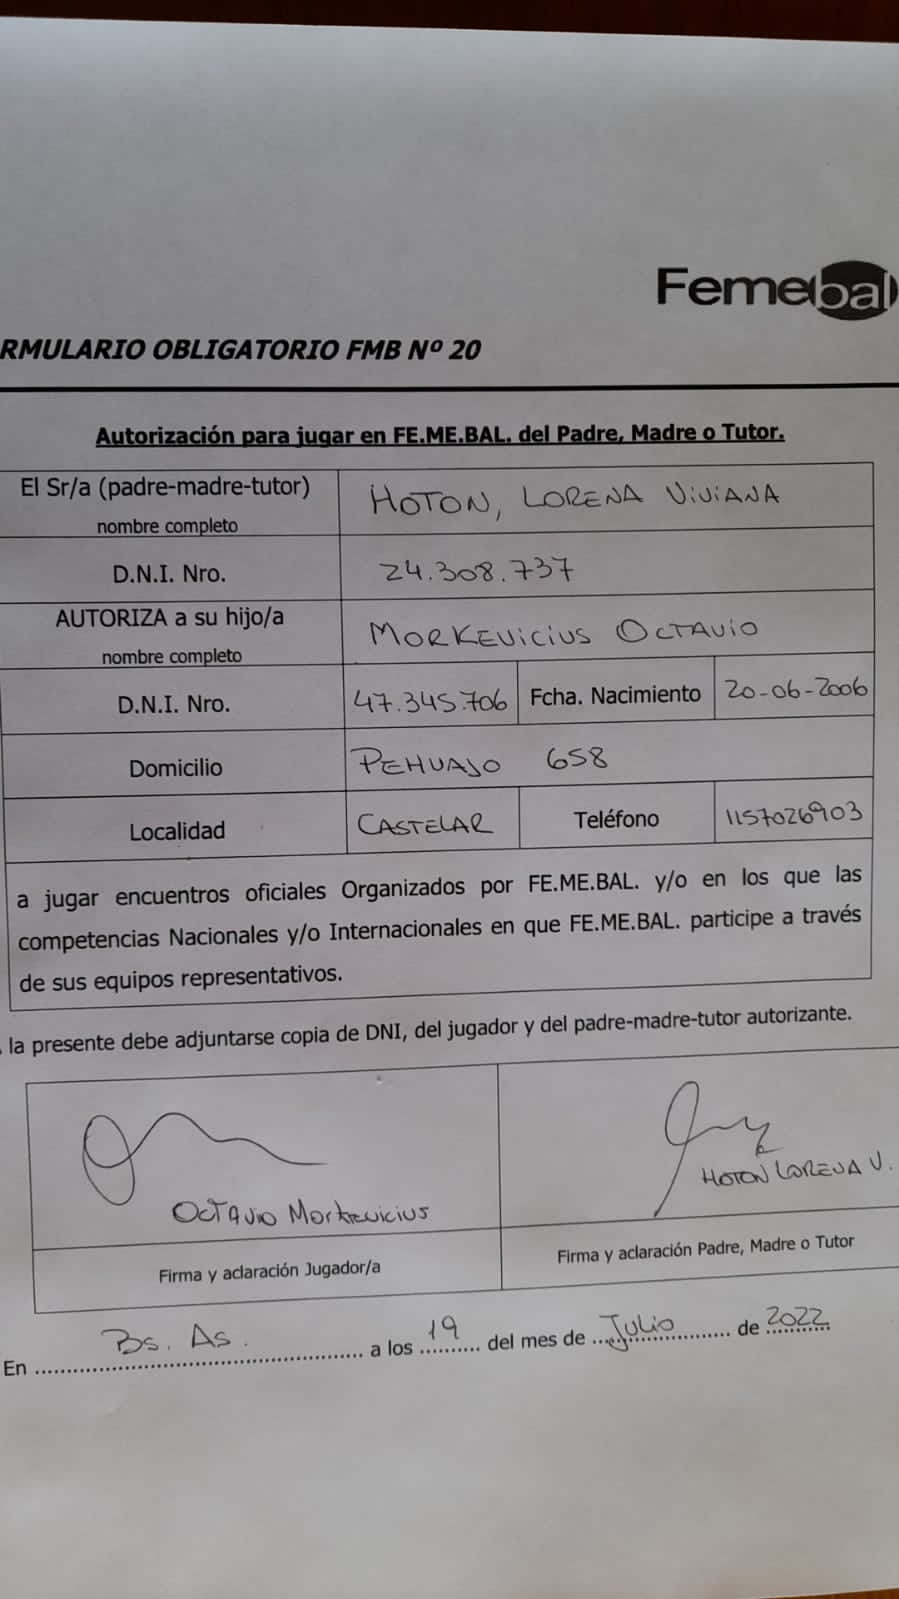 Femebal
RMULARIO OBLIGATORIO FMB Nº 20
Autorización para jugar en FE.ME.BAL. del Padre, Madre o Tutor.
El Sr/a (padre-madre-tutor)
nombre completo
HOTON, LORENA VIVIANA
D.N.I. Nro.
24.308.737
AUTORIZA a su hijo/a
nombre completo
MORKEVICIUS OCTAVIO
D.N.I. Nro.
47.345.706
Fcha. Nacimiento
20-06-2006
Domicilio
PEHUAJO 658
Localidad
CASTELAR
Teléfono
1157026903
a jugar encuentros oficiales Organizados por FE.ME.BAL. y/o en los que las
competencias Nacionales y/o Internacionales en que FE.ME.BAL. participe a través
de sus equipos representativos.
la presente debe adjuntarse copia de DNI, del jugador y del padre-madre-tutor autorizante.
OCTAVIO MORKEVICIUS
HOTON LORENA V.
Firma y aclaración Jugador/a
Firma y aclaración Padre, Madre o Tutor
En Bs. As. a los 19 del mes de Julio de 2022